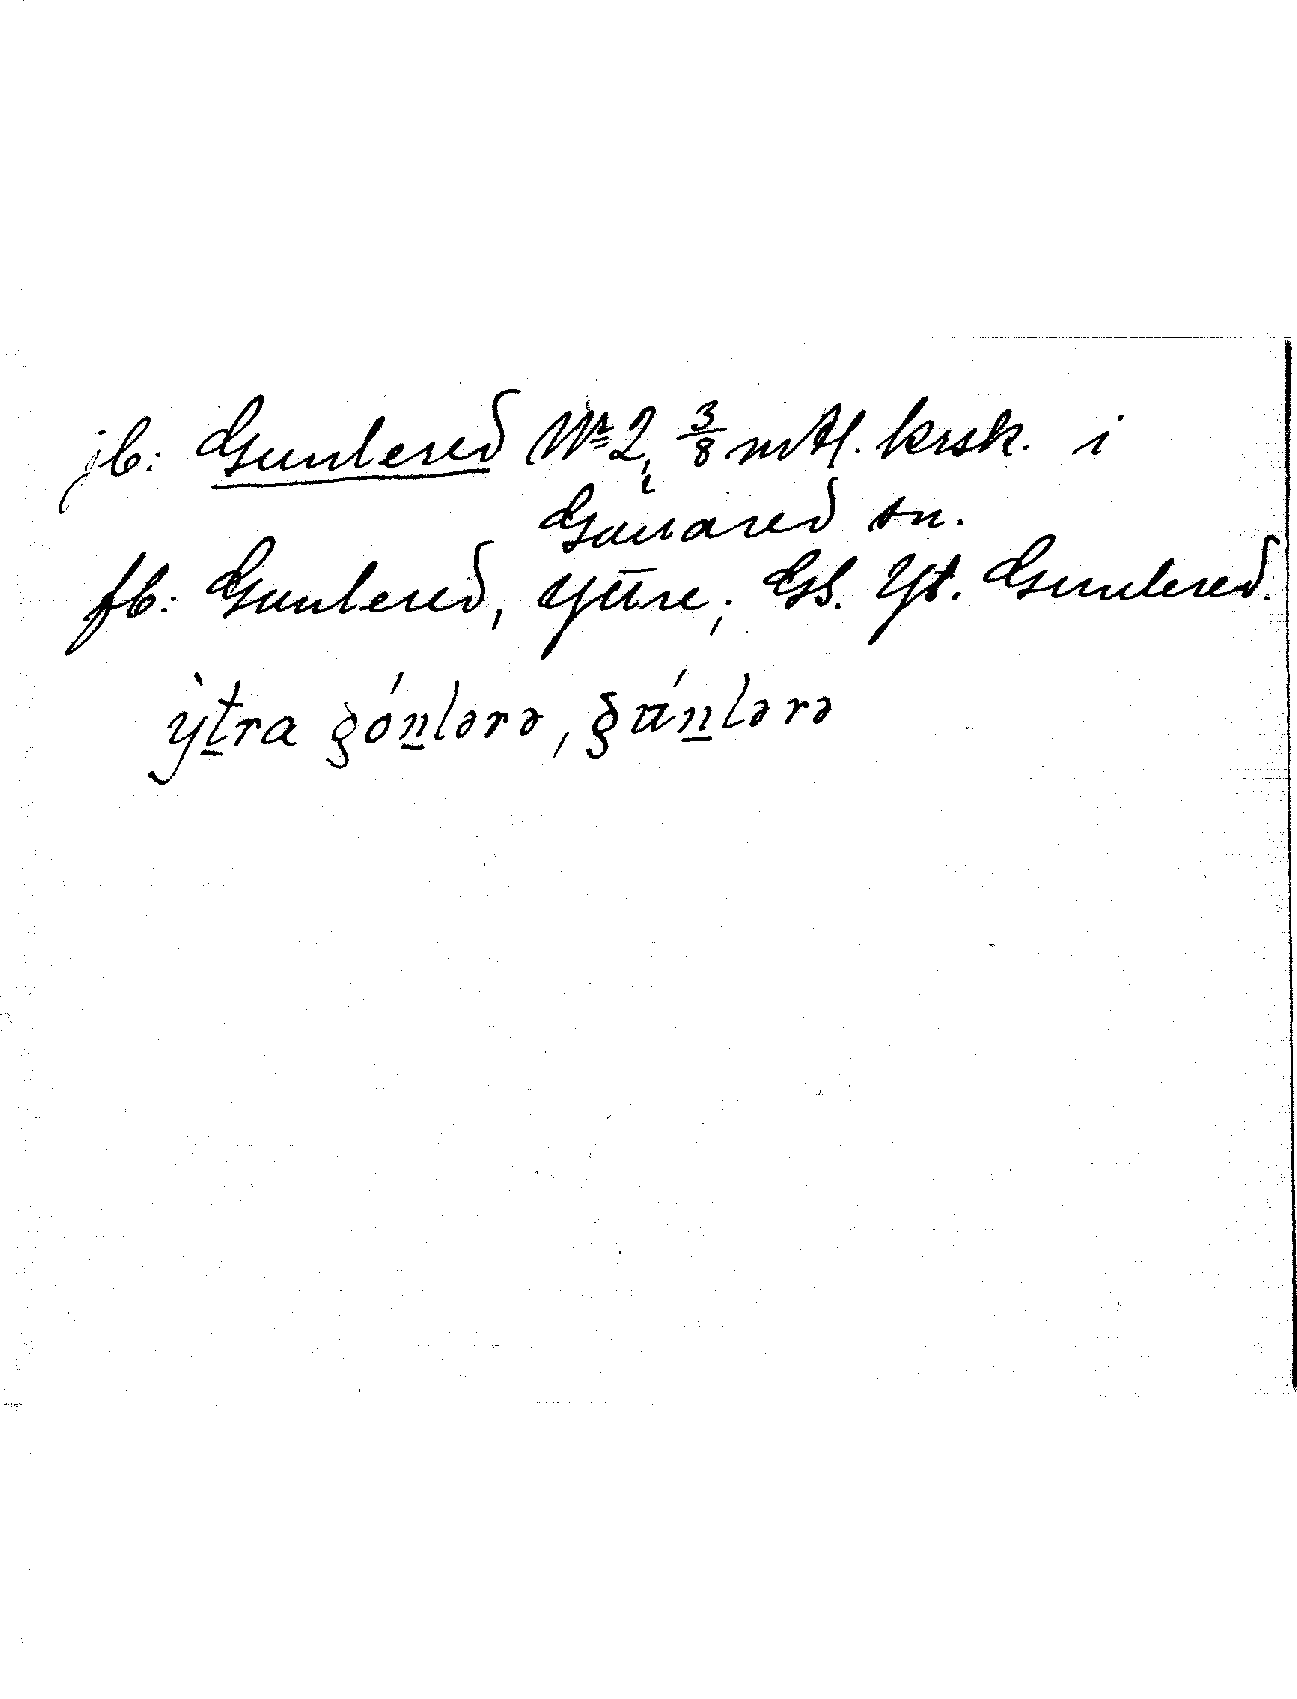 jb: Gunlered Nr 2, 3/8 mtl. krsk. i
Gunnared sn.
fb: Gunlered, Yttre; GS. Yt. Gunlered.
ỳt̲ra gón̲lərə, gún̲lərə